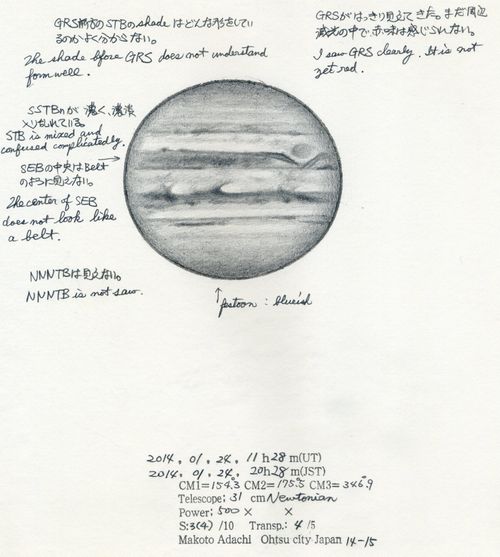 GRS前方のSTBのshadeはどんな形をしてい
るのかよく分からない。
The shade bfore GRS does not understand
form well.
GRSがはっきり見えてきた。まだ周辺
減光の中で、赤味は感じられない。
I saw GRS clearly. It is not
yet red.
SSTBnが濃く、濃淡
入り乱れている。
STB is mixed and
confused complicatedly.
SEBの中央はBelt
のように見えない。
The center of SEB
does not look like
a belt.
NNNTBは見えない。
NNNTB is not saw.
↑ festoon : blueish
2014, 01, 24, 11 h 28 m(UT)
2014, 01, 24, 20h 28 m(JST)
CM1=154.3° CM2=175.5° CM3=346.9°
Telescope; 31 cm Newtonian
Power; 500 × ×
S:3(4) /10 Transp.: 4 /5
Makoto Adachi Ohtsu city Japan 14-15